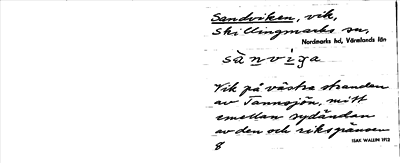 Sandviken, vik,
Skillingmarks sn,
Nordmarks hd, Värmlands län
sànviga
Vik på västra stranden
av Tannsjön, mitt
emellan sydändan
av den och riksgränsen
8
ISAK WALLIN 1912